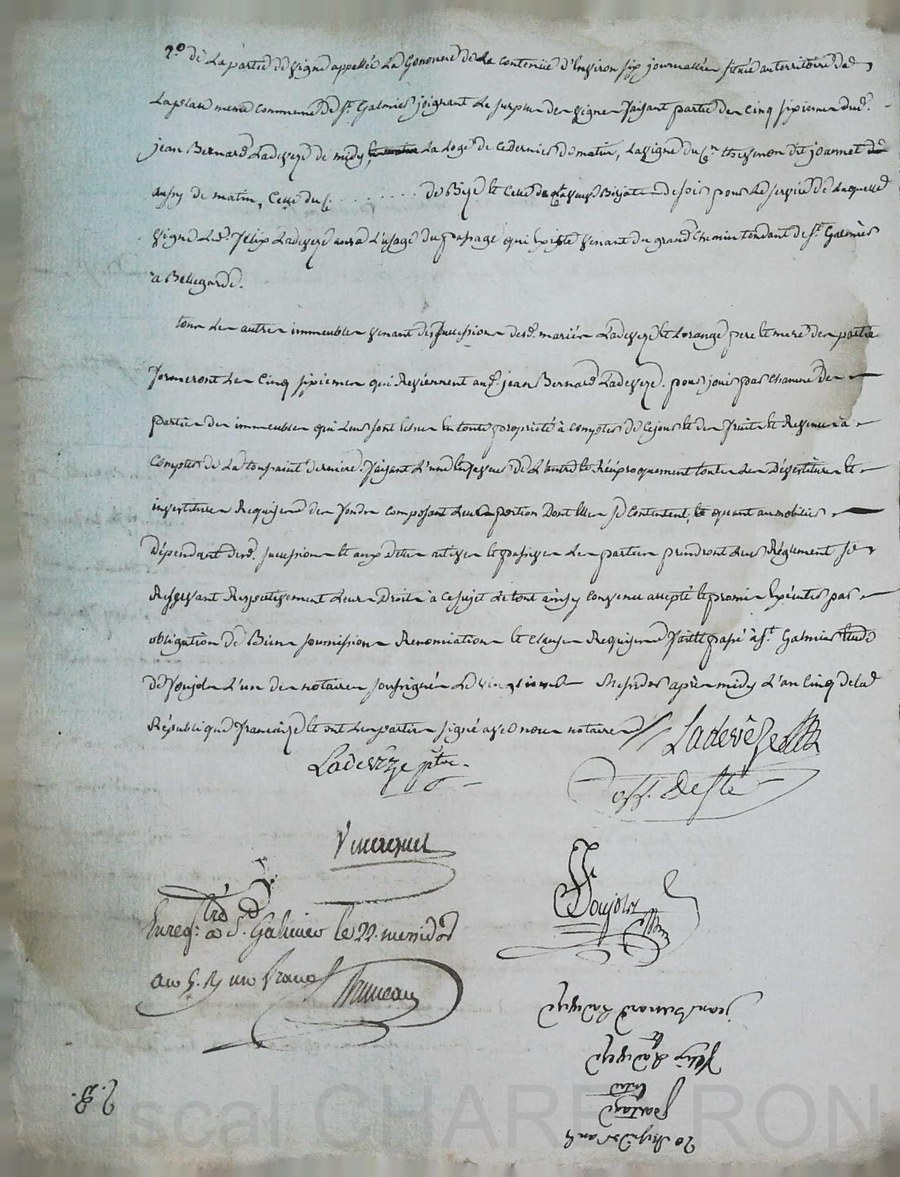 2.o de La partie de vigne appellée La Gononne de La contenüe d'Environ six journallée située au territoire de
La plan meme commune de St. Galmier joignant Le surplus des vignes faisant partie des cinq sixieme dud.
jean Bernard Ladeveze de midy, La Loge de de matin, La vigne du Cn. Thevenon dit joannet
aussy de matin, Celle du C. . . . . . . . . . de Bize Et Celle de de soir pour Le service de Laquelle
vigne Led. felix Ladeveze aura L'usage du passage qui Existe venant du grand Chemin tendant de St. Galmier
a Bellegarde.
tous Les autres immeubles venant des sucession desd. mariés Ladeveze Et Lorange pere Et mere des partie
formeront Les Cinq sixiemes qui Reviennent aud. jean Bernard Ladeveze. pour jouir par chacune des
parties des immeubles qui Leurs sont Echue En toute propriété à compter de Cejour Et des fruits Et Revenus à
Compter de La toussaint derniere. faisant L'une En faveur de L'autre Et Réciproquement toutes Les Dévestiture Et
investitures Requises des fonds composant Leurs portion Dont Elles se Contentent, Et quant au mobilier
Dépendant desd. sucession Et aux dettes actives Et passives Les parties prendront Leur Réglement se
Reservant Respectivement Leurs Droits à ce sujet Le tout ainsy convenu accepté Et promis Executer par
obligation de Biens soumissions Renonciations Et Clauses Requises fait Et passé à St. Galmier Etude
de Poujol L'un des notaires soussignés Le vingt messidor après midy L'an Cinq de La
République francaise Et ont Les parties signé avec nous notaires
Ladevèze
Ladeveze
Vincent
Poujol
Enregtré à St. Galmier le 22. messidor
an 5. R un franc
jean bernard Ladeveze
felix Ladeveze
partage
20 Messidor an 5
Pascal CHAREYRON